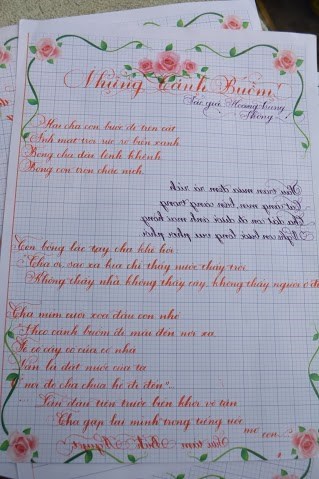 Những Cánh Buồm!
Tác giả: Hoàng Trung
Thông
Hai cha con bước đi trên cát
Ánh mặt trời rực rỡ biển xanh
Bóng cha dài lênh khênh
Bóng con tròn chắc nịch.
Sau trận mưa đêm rả rích
Cát càng mịn, biển càng trong
Cha dắt con đi dưới ánh mai hồng
Nghe con bước lòng vui phơi phới
Con bỗng lắc tay cha khẽ hỏi
"Cha ơi, sao xa kia chỉ thấy nước thấy trời
Không thấy nhà, không thấy cây, không thấy người ở đó
Cha mỉm cười xoa đầu con nhỏ
"Theo cánh buồm đi mãi đến nơi xa
Sẽ có cây có cửa có nhà
Vẫn là đất nước của ta
nơi đó cha chưa hề đi đến"...
Lần đầu tiên trước biển khơi vô tận
Cha gặp lại mình trong tiếng nói
mơ
con...